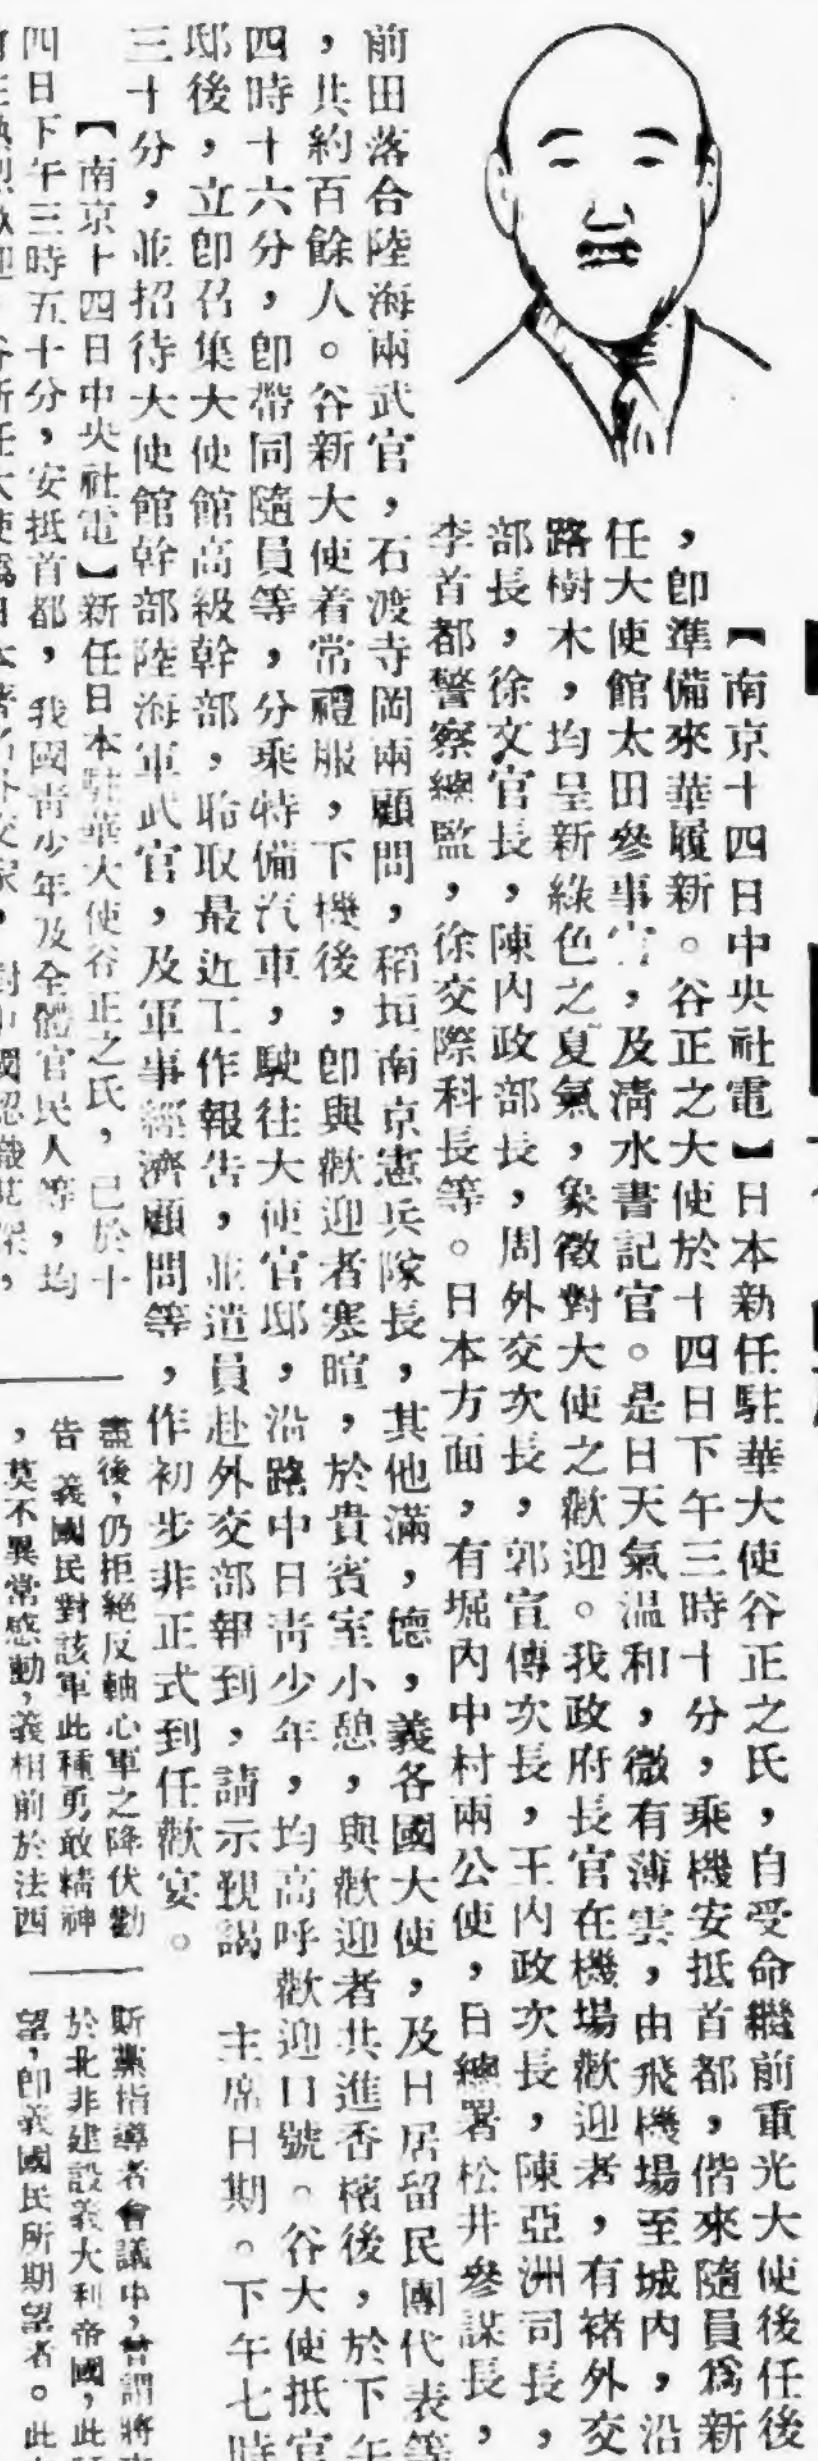 【南京十四日中央社電】日本新任駐華大使谷正之氏，自受命繼前重光大使後任後
，卽準備來華履新。谷正之大使於十四日下午三時十分，乘機安抵首都，偕來隨員爲新
任大使館太田參事官，及淸水書記官。是日天氣温和，微有薄雲，由飛機場至城內，沿
路樹木，均呈新綠色之夏氣，象徵對大使之歡迎。我政府長官在機場歡迎者，有褚外交
部長，徐文官長，陳內政部長，周外交次長，郭宣傳次長，王內政次長，陳亞洲司長，
李首都警察總監，徐交際科長等。日本方面，有堀內中村兩公使，日總署松井參謀長，
前田落合陸海兩武官，石渡寺岡兩顧問，稻垣南京憲兵隊長，其他滿，德，義各國大使，及日居留民團代表等
，共約百餘人。谷新大使着常禮服，下機後，卽與歡迎者寒暄，於貴賓室小憩，與歡迎者共進香檳後，於下午
四時十六分，卽帶同隨員等，分乘特備汽車，駛往大使官邸，沿路中日靑少年，均高呼歡迎口號。谷大使抵官
邸後，立卽召集大使館高級幹部，聆取最近工作報告，並遣員赴外交部報到，請示覲謁　主席日期。下午七時
三十分，並招待大使館幹部陸海軍武官，及軍事經濟顧問等，作初步非正式到任歡宴。
【南京十四日中央社電】新任日本駐華大使谷正之氏，已於十
四日下午三時五十分，安抵首都，我國靑少年及全體官民人等，均
盡後，仍拒絕反軸心軍之降伏勸
告 義國民對該軍此種勇敢精神
，莫不異常感動，義相前於法西
斯黨指導者會議中，曾謂將
於北非建設義大利帝國，此
望，卽義國民所期望者。此